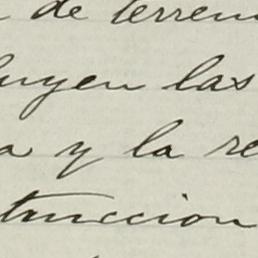 de terren
luyen las
a y la re
truccion